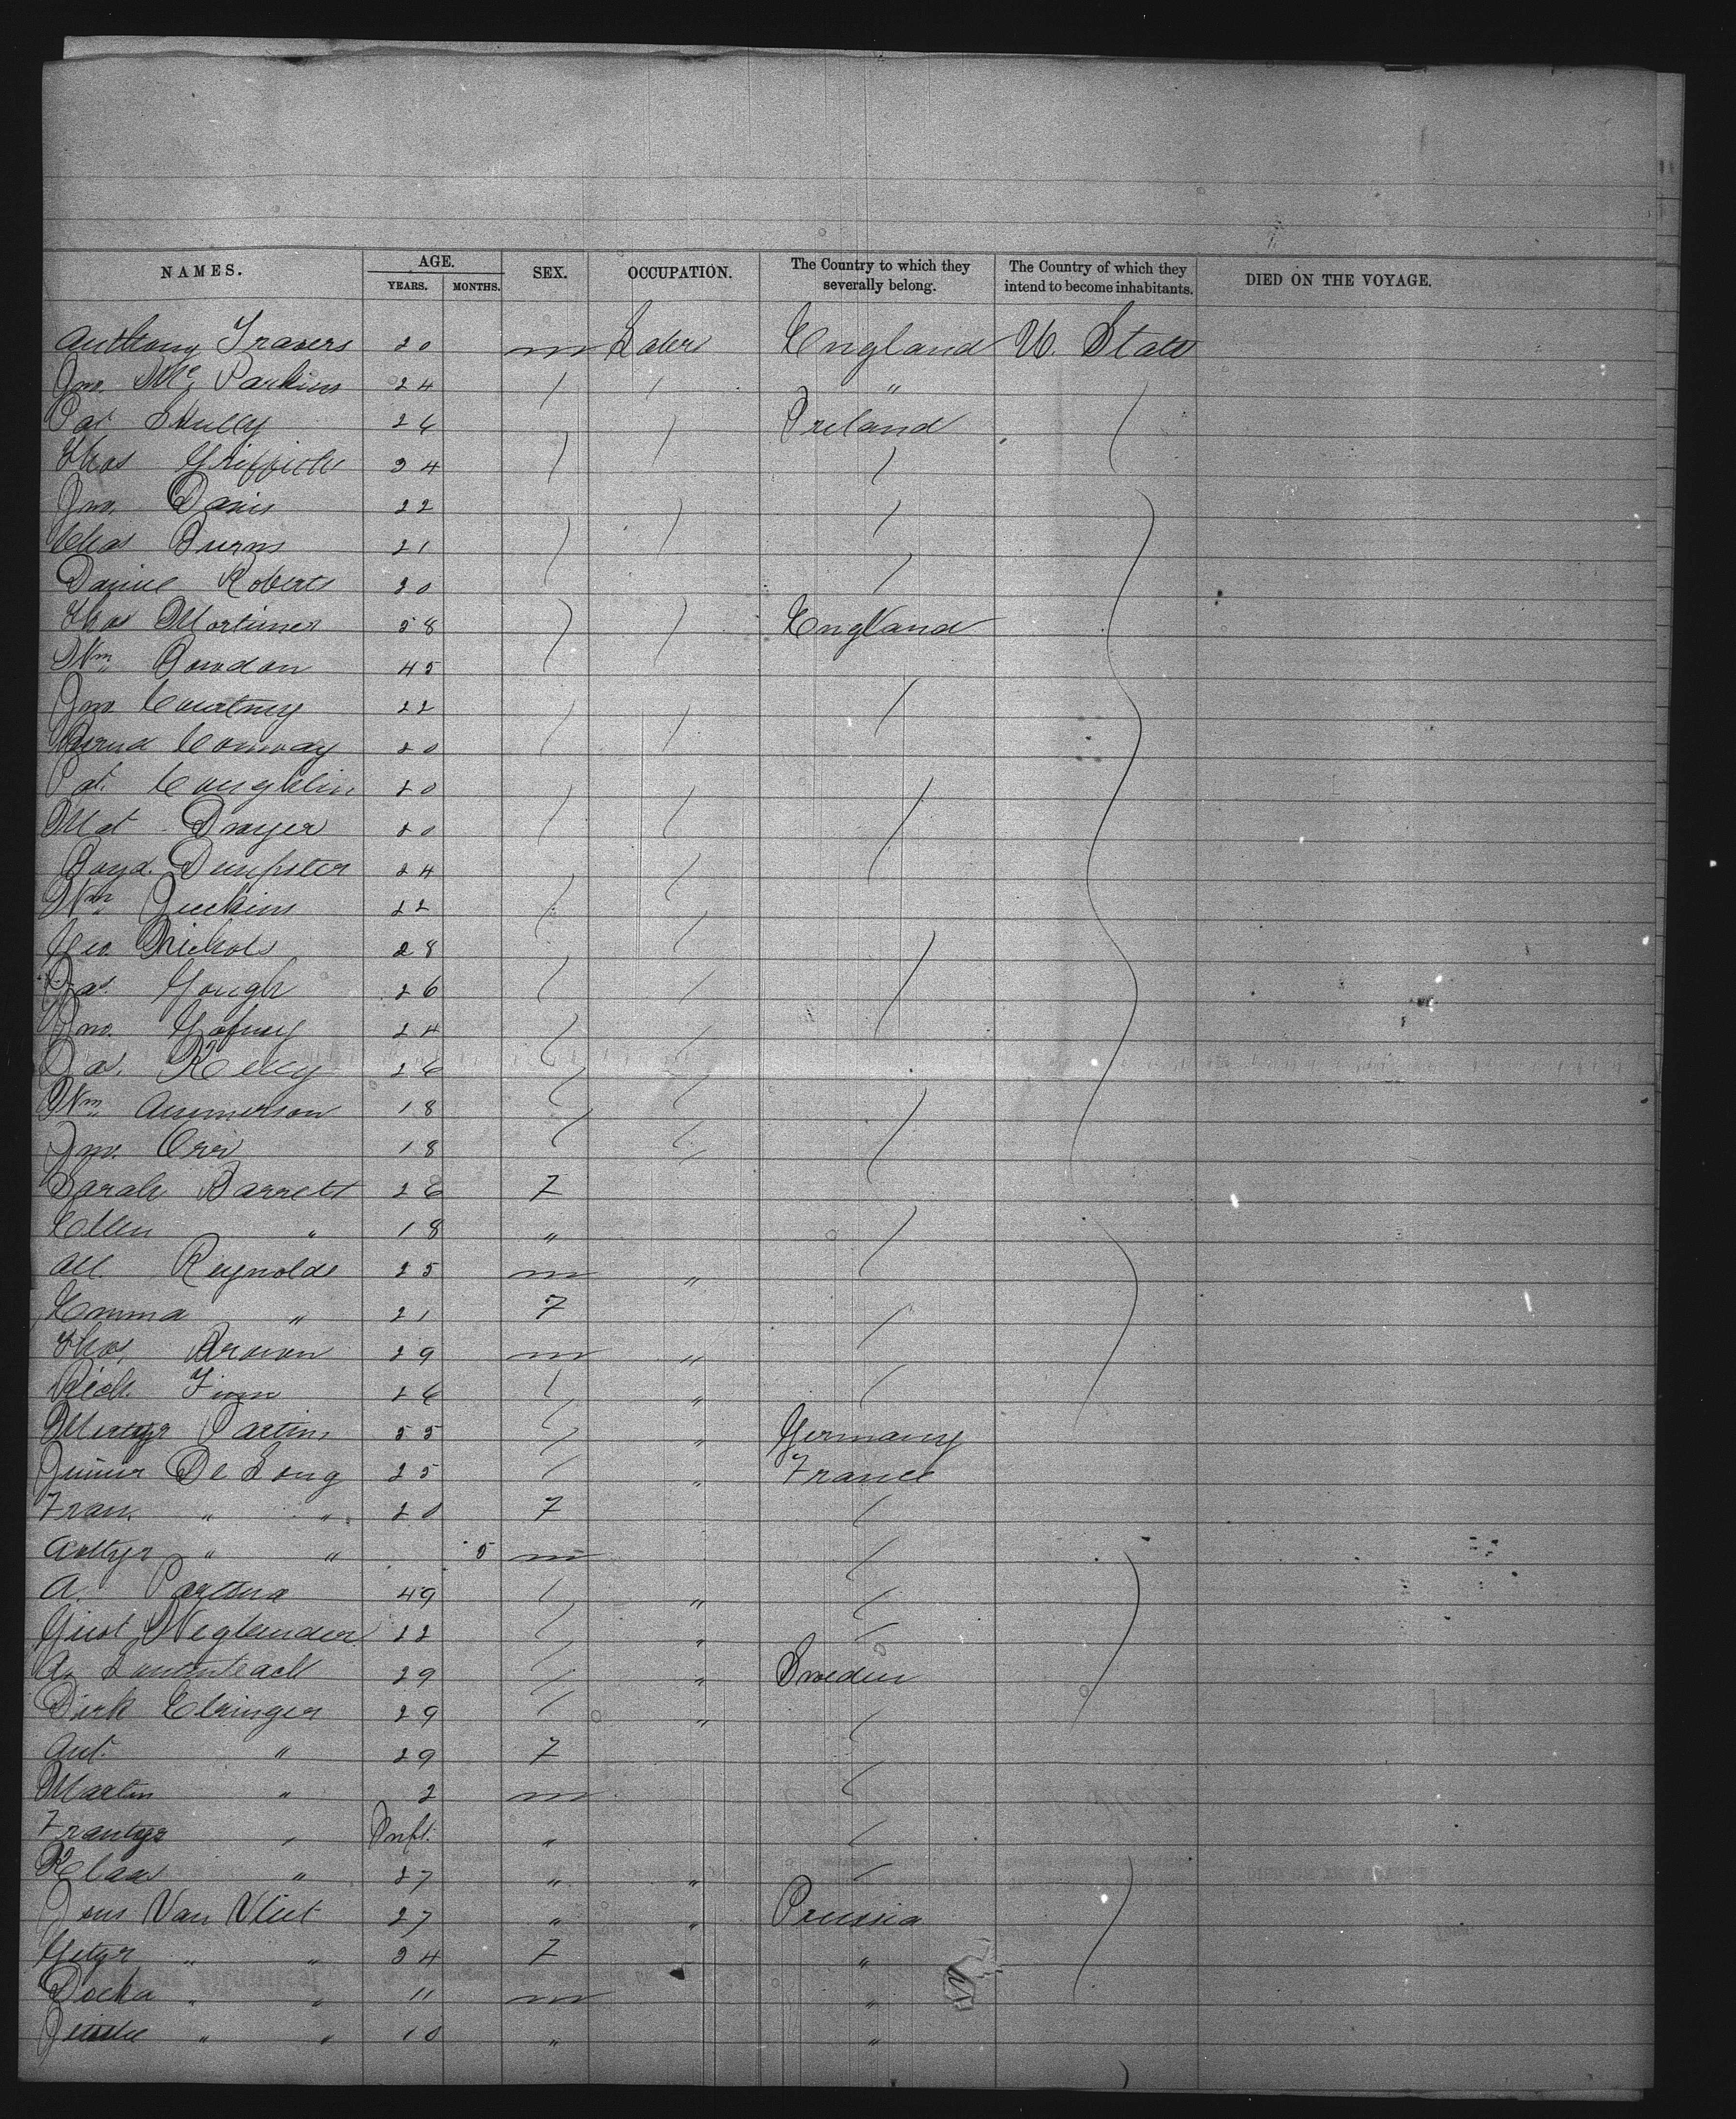 NAMES. AGE. SEX. OCCUPATION. The Country to which they severally belong. The Country of which they intend to become inhabitants. DIED ON THE VOYAGE.
YEARS. MONTHS.
Anthony Travers 20 m Labr England U. State
Jno. Mc Parkins 24 "
Pat Skully 26 Ireland
Thos Griffiths 24
Jno. Davis 22
Chas Burns 21
Daniel Roberts 20
Thos Mortimer 58 England
Wm Bowdon 45
Jno Courtney 22
Bernd Conway 20
Pat. Coughlin 20
Mat Dwyer 20
Boyd. Dempster 24
Wm Juckins 22
Geo. Nichols 28
Jas. Gough 26
Jno. 24
Jas. Kelly 26
Wm Ammerson 18
Jno. Orr 18
Sarah Barrett 26 F
Ellen " 18 "
All. Reynolds 25 m "
Emma " 21 F
Thos. Brown 29 m "
Rich. Finn 26 "
Martin 55 " Germany
De Long 25 " France
Fran. " " 20 F
" " 5 m
A. 49 "
Gust 22 "
A. 29 " Sweden
Dirk Elringer 29 "
Ant. " 29 F
Martin " 2 m
" Inft. "
Klaas " 27 " "
Jans Van Vliet 27 " " Prussia
" " 24 F "
Docka " " 11 m "
" " 10 " "